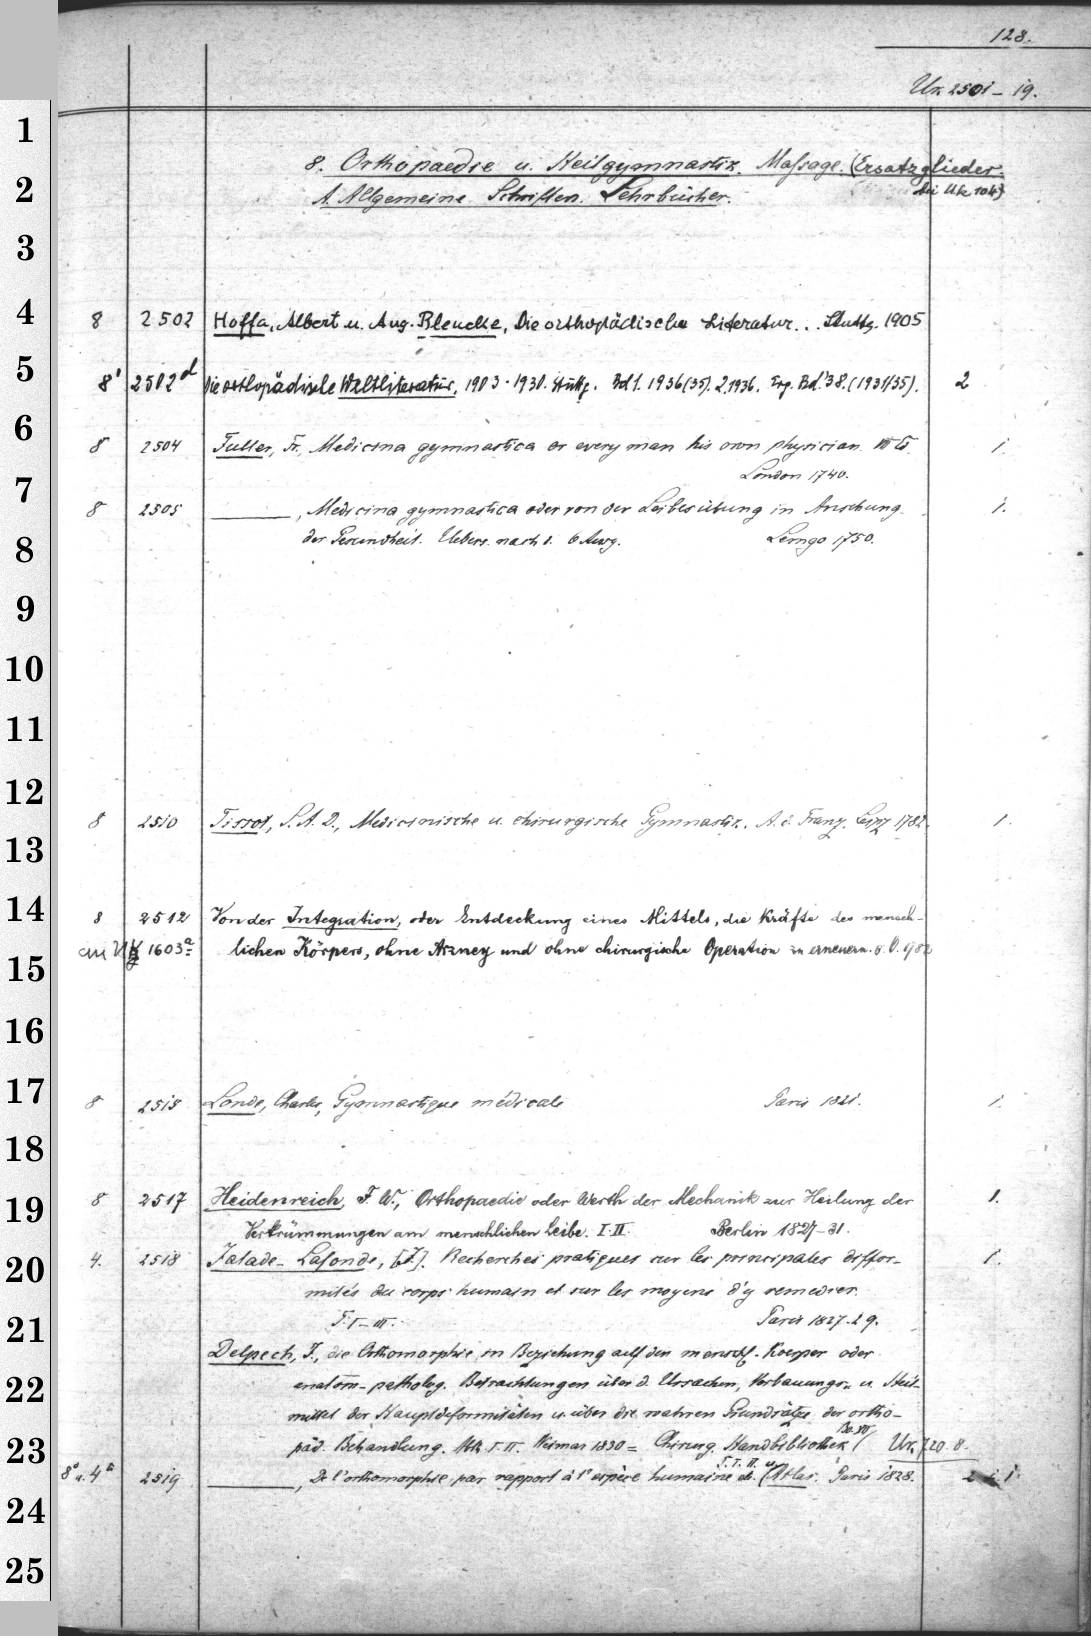 128.
Uk 2501 – 19.
1
8. Orthopaedie u. Heilgymnastik. Massage. (Ersatzglieder.
2
A. Allgemeine Schriften. Lehrbücher.
bei Uk 104)
3
4
8 2502 Hoffa, Albert u. Aug. Blencke, Die orthopädische Literatur... Stuttg. 1905
5
8° 2502 d Die orthopädische Weltliteratur, 1903-1930. Stuttg. Bd 1. 1936(35). 2.1936. Erg. Bd. '38. (1931/35). 2
6
8 2504 Fuller, Fr., Medicina gymnastica or every man his own physician 1.
7
London 1740.
8 2505 ———, Medicina gymnastica oder von der Leibesübung in Ansehung 1.
8
der Gesundheit. Uebers. nach d. 6 Ausg. Lemgo 1750.
9
10
11
12
8 2510 Tissot, S. A. D., Medicinische u. chirurgische Gymnastik. A. d. Franz. Leipz 1782. 1.
13
14
8 2512 Von der Integration, oder Entdeckung eines Mittels, die Kräfte des mensch-
an 1603 a lichen Körpers, ohne Arzney und ohne chirurgische Operation zu erneuern. o. O.
15
16
17
8 2515 Londe, Charles, Gymnastique médicale Paris 1821. 1.
18
19
8 2517 Heidenreich, F. W., Orthopaedie oder Werth der Mechanik zur Heilung der 1.
Verkrümmungen am menschlichen Leibe. I-II. Berlin 1827-31.
20
4. 2518 Jalade-Lafonde, [J.]. Recherches pratiques sur les principales diffor- 1.
mités du corps humain et sur les moyens d'y remedier.
21
T. I-III. Paris 1827-29.
Delpech, J., die Orthomorphie in Beziehung auf den menschl. Koerper oder
22
anatom-patholog. Betrachtungen über d. Ursachen, Vorbauungs- u. Heil-
mittel der Hauptdeformitäten u. über die wahren Grundsätze der ortho-
23
päd. Behandlung. Weimar 1830 = Chirurg. Handbibliothek Uk 720. 8.
8° u. 4° 2519 ———, De l'orthomorphie par rapport à l'espèce humaine etc. T. I. II. u. Atlas. Paris 1828. 2
24
25